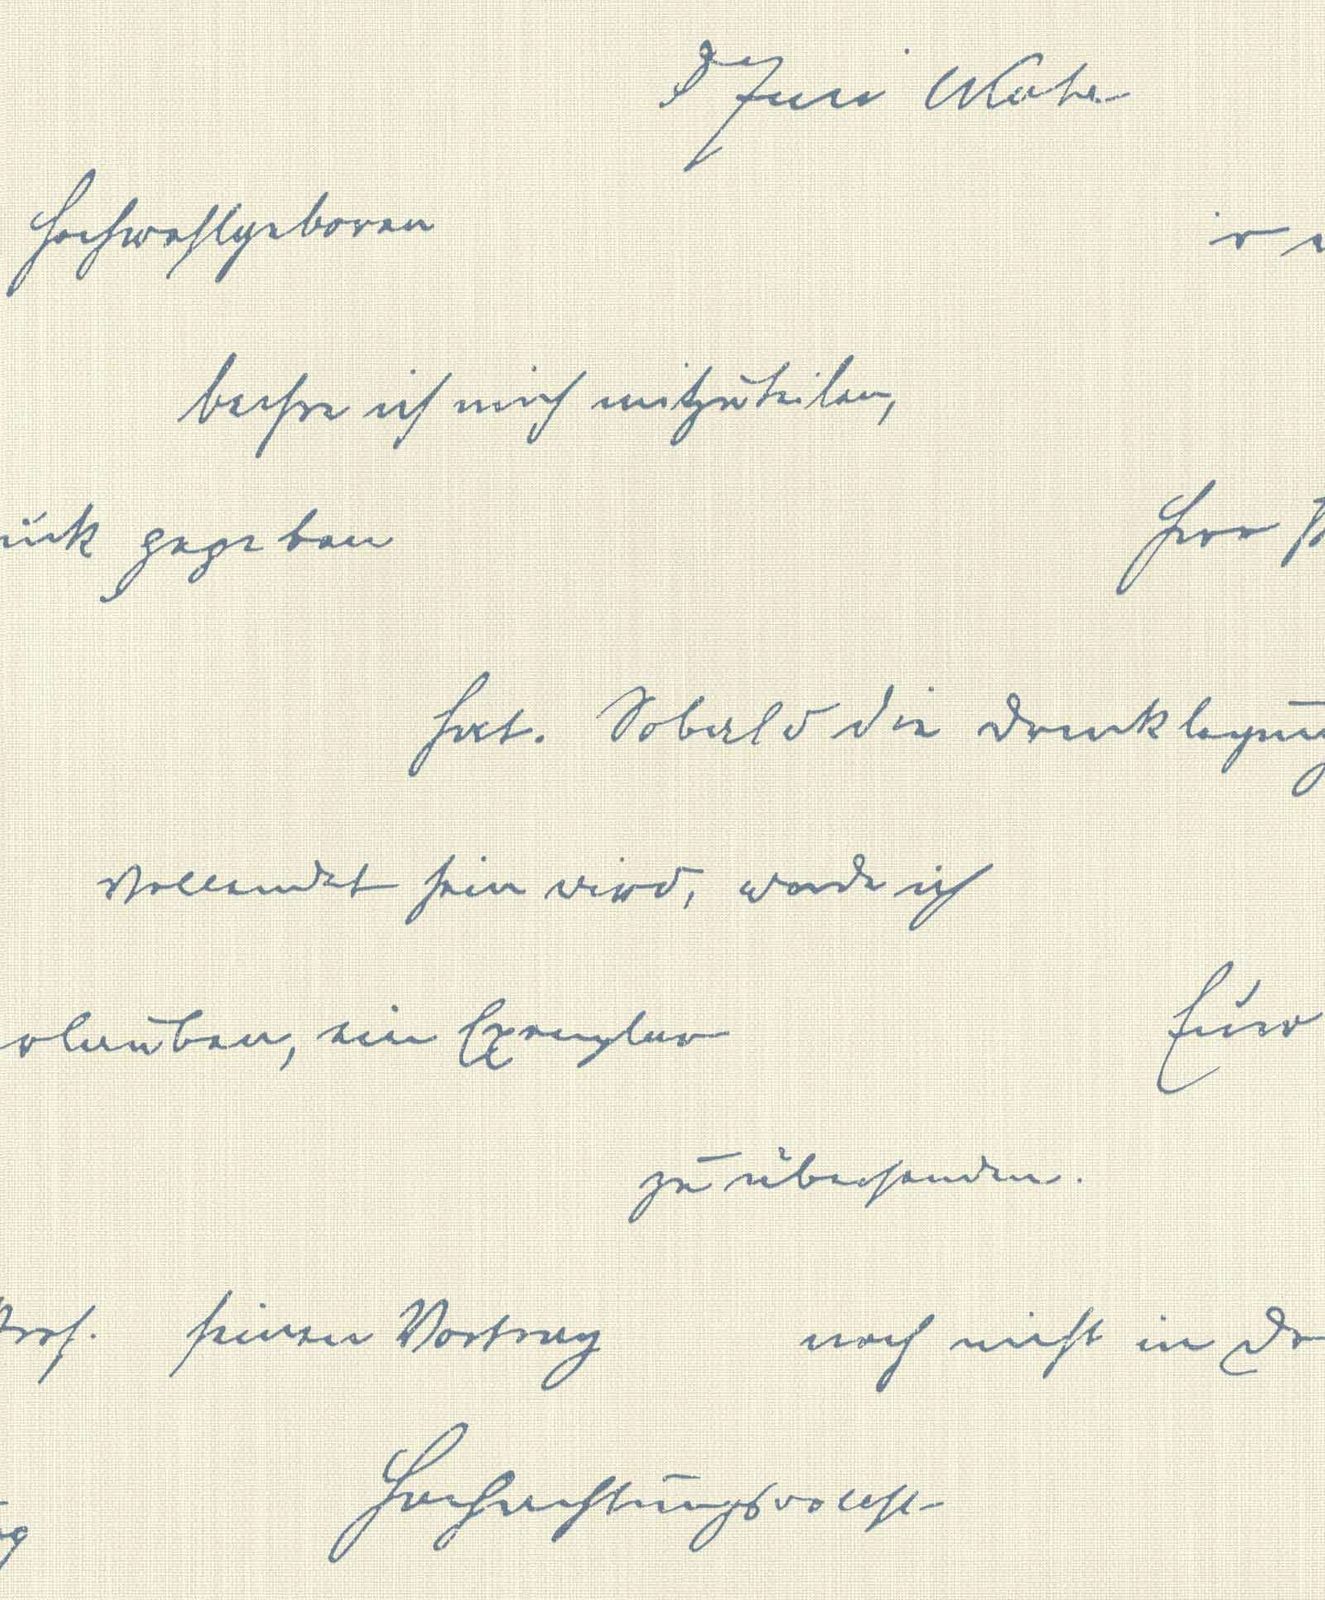 Hochwohlgeboren
beehre ich mich mitzuteilen,
ruck gegeben Herr
hat. Sobald die Drucklegung
vollendet sein wird, werde ich
erlauben, ein Exemplar Euer
zu übersenden.
Prof. seinen Vortrag noch nicht in Dr
Hochachtungsvollst